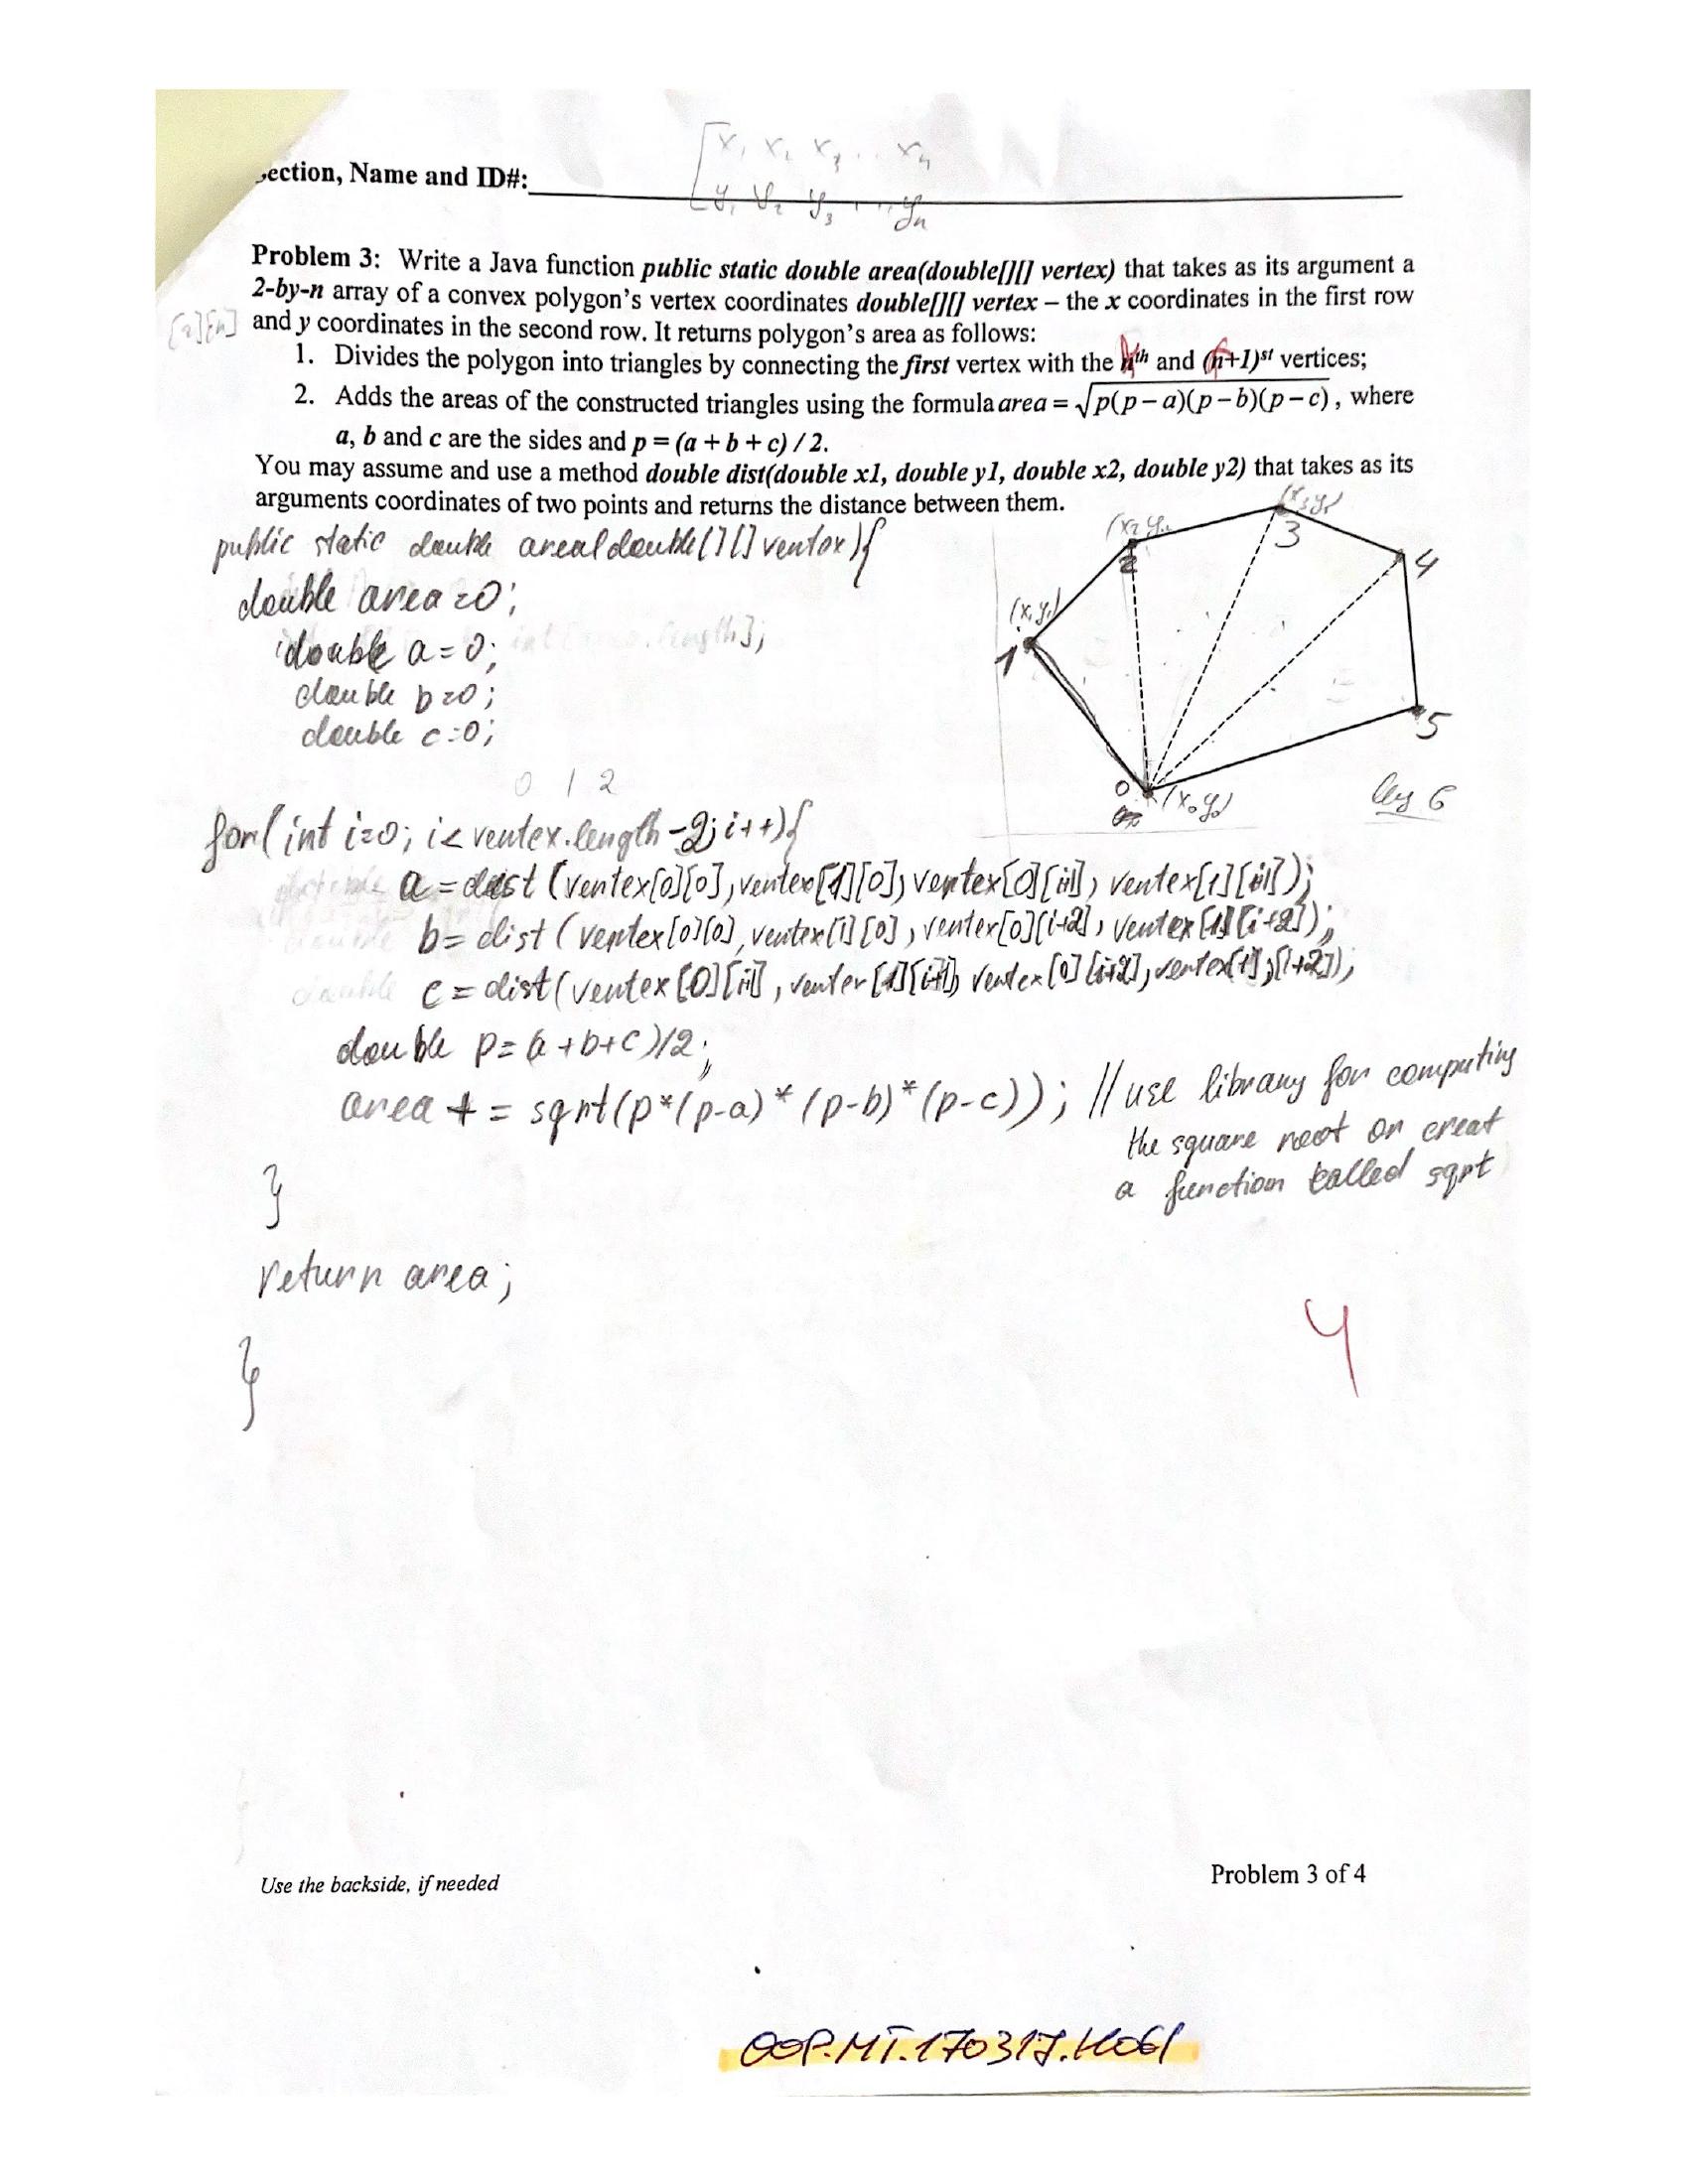 x1 x2 x3 .. xn
y1 y2 y3 .... yn
ection, Name and ID#:
Problem 3: Write a Java function public static double area(double[][] vertex) that takes as its argument a
2-by-n array of a convex polygon's vertex coordinates double[][] vertex – the x coordinates in the first row
[2][n] and y coordinates in the second row. It returns polygon's area as follows:
1. Divides the polygon into triangles by connecting the first vertex with the nth and (n+1)st vertices;
2. Adds the areas of the constructed triangles using the formula area = √p(p – a)(p – b)(p – c), where
a, b and c are the sides and p = (a + b + c) / 2.
You may assume and use a method double dist(double x1, double y1, double x2, double y2) that takes as its
arguments coordinates of two points and returns the distance between them.
public static double area(double[][] vertex){
double area=0;
double a=0;
double b=0;
double c=0;
0 1 2
for(int i=0; i< vertex.length-2; i++){
a=dist(vertex[0][0],vertex[1][0],vertex[0][i+1], vertex[1][i+1]);
b= dist(vertex[0][0],vertex[1][0],vertex[0][i+2], vertex[1][i+2]);
c=dist(vertex[0][i+1], vertex[1][i+1], vertex[0][i+2],vertex[1],[i+2]);
double p=(a+b+c)/2;
area += sqrt(p*(p-a)*(p-b)*(p-c)); // use library for computing
the square root or creat
a function called sqrt
}
return area;
}
(x1y1)
1
(x2y2
2
(x3y3)
3
4
5
0
(x0y0)
6
4
Use the backside, if needed
Problem 3 of 4
OOP.MT.170317.H061